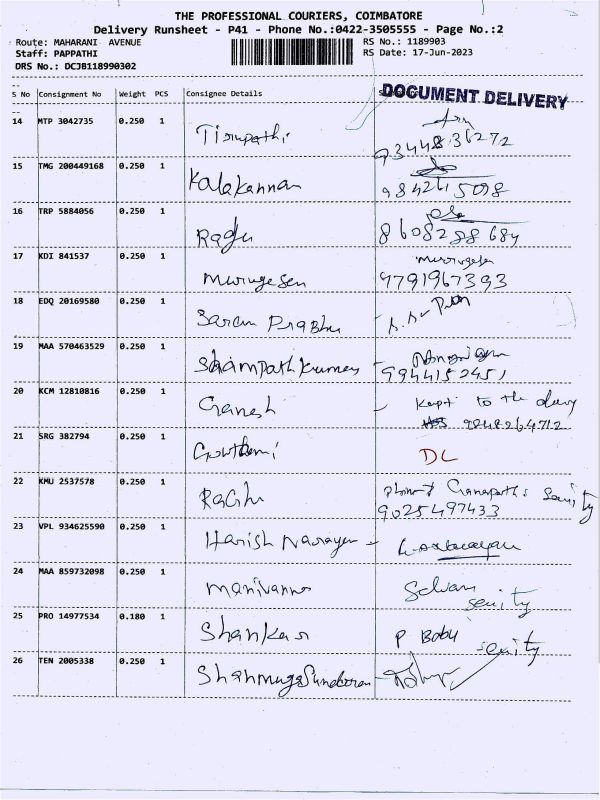 THE PROFESSIONAL COURIERS, COIMBATORE
Delivery Runsheet - P41 - Phone No.:0422-3505555 - Page No.:2
Route: MAHARANI AVENUE RS No.: 1189903
Staff: PAPPATHI RS Date: 17-Jun-2023
DRS No.: DCJB118990302
S No Consignment No Weight PCS Consignee Details
DOCUMENT DELIVERY
14 MTP 3042735 0.250 1 Tirupathi
9344836272
15 TMG 200449168 0.250 1 Kalakannan
9842615098
16 TRP 5884056 0.250 1 Ragu
8608288684
17 KDI 841537 0.250 1 Murugesen murugesen
9791967393
18 EDQ 20169580 0.250 1 Saran Prabhu
19 MAA 570463529 0.250 1 Shampath Kumar
9944152451
20 KCM 12810816 0.250 1 Ganesh - Kept to the
21 SRG 382794 0.250 1 Gowthami DL
22 KMU 2537578 0.250 1 Raghu
9025497433
23 VPL 934625590 0.250 1 Harish Narayan -
24 MAA 859732098 0.250 1 Manivanna Selvam
seuity
25 PRO 14977534 0.180 1 Shankar P Babu seuity
26 TEN 2005338 0.250 1 ShanmugaSundaram